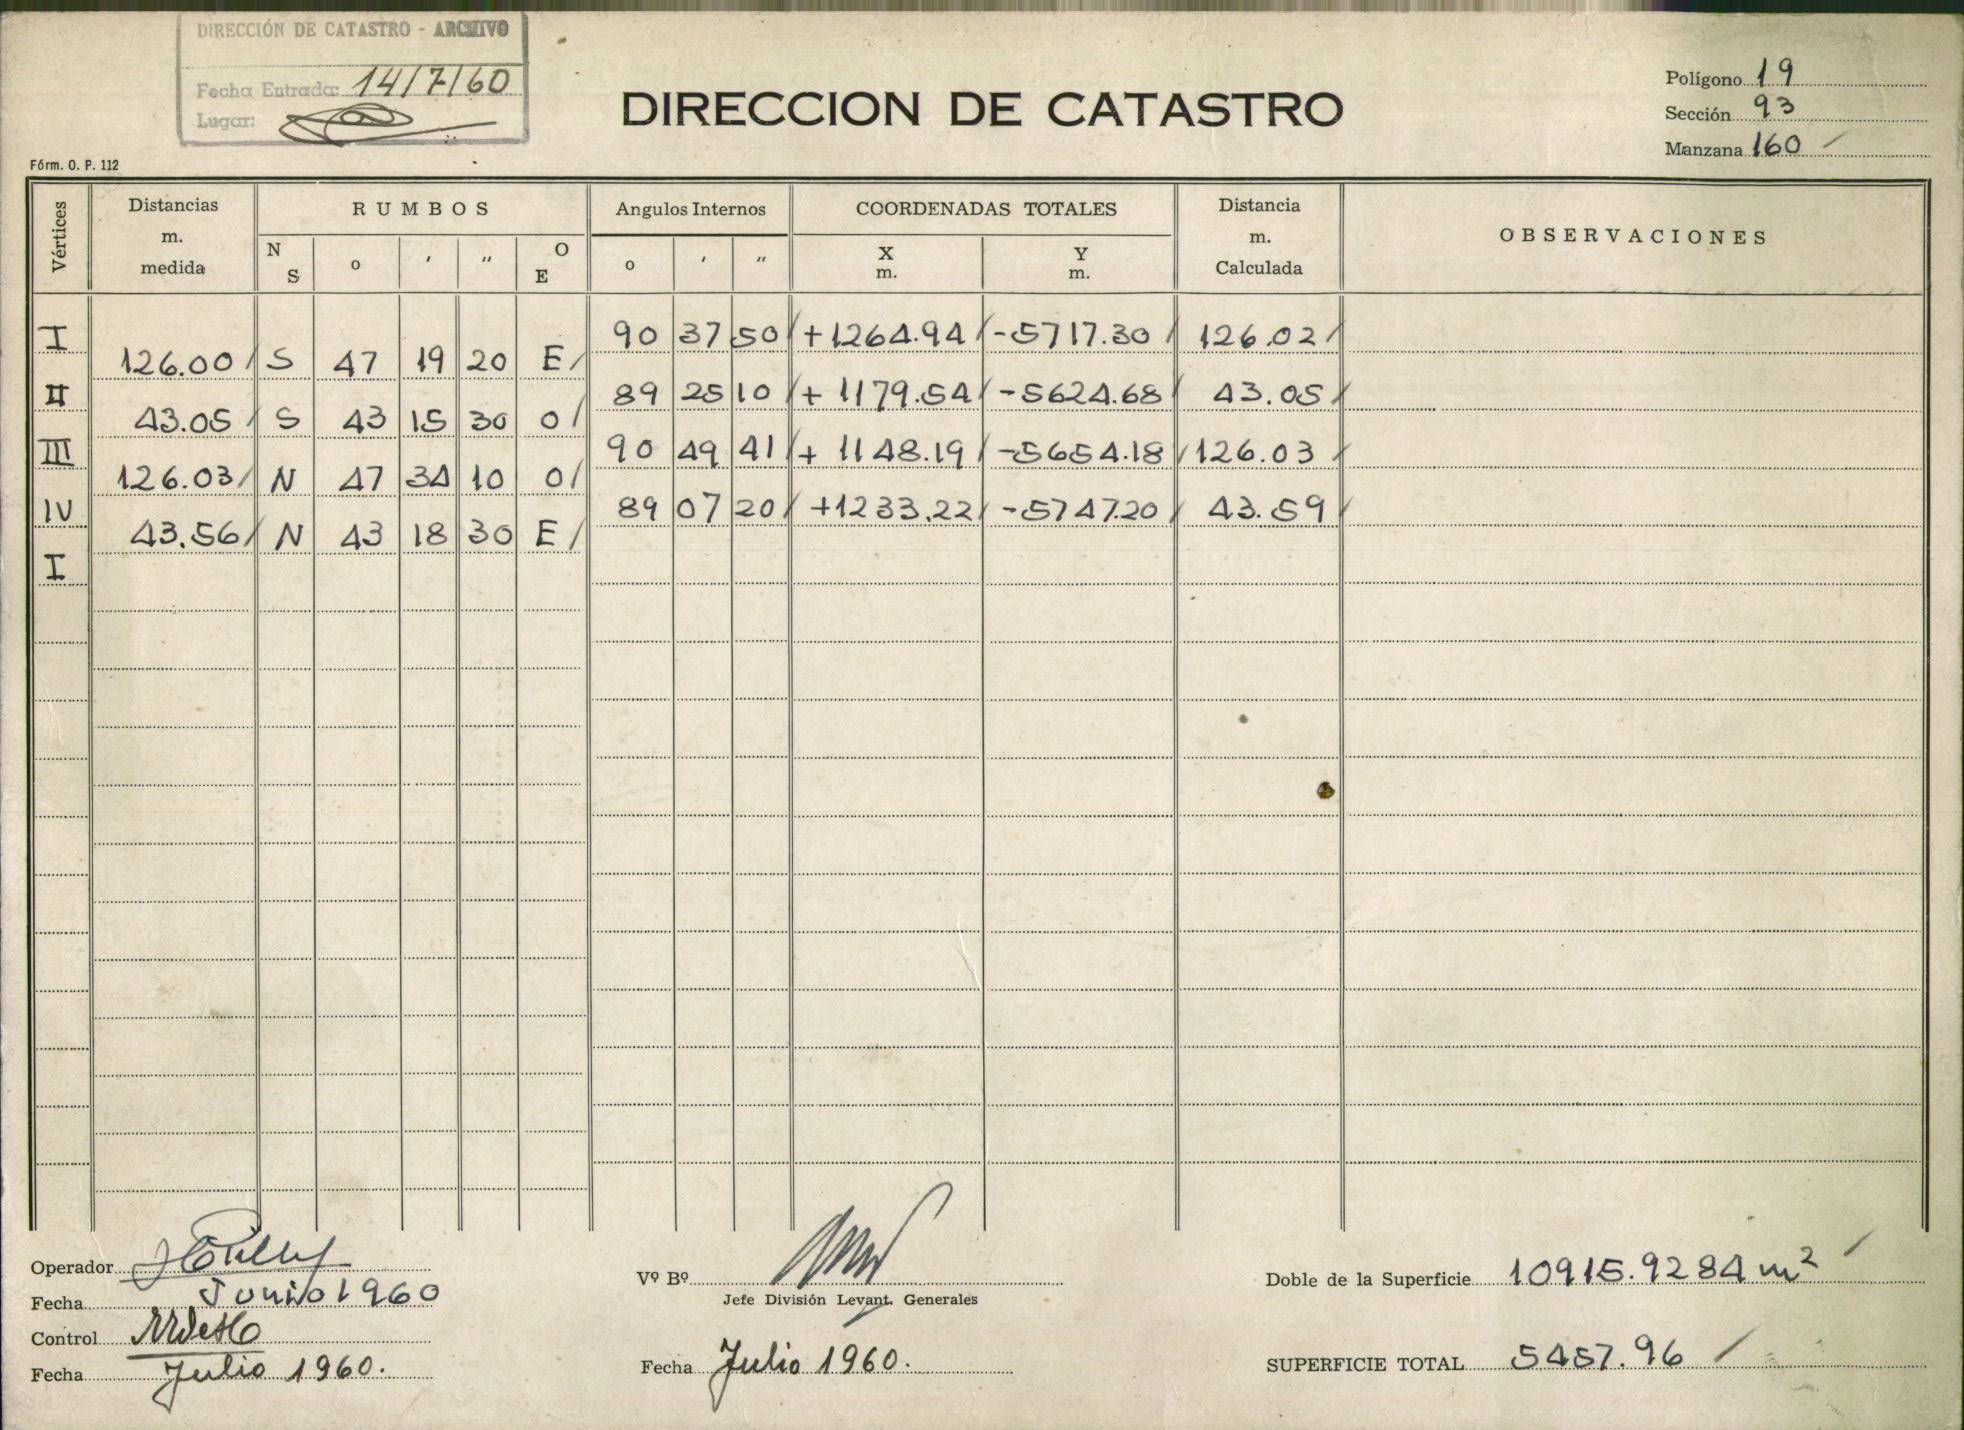 DIRECCIÓN DE CATASTRO - ARCHIVO
Fecha Entrada: 14/7/60
Lugar:
DIRECCION DE CATASTRO
Polígono 19
Sección 93
Manzana 160
Fórm. O. P. 112
Vértices Distancias m. medida RUMBOS Angulos Internos COORDENADAS TOTALES Distancia m. Calculada OBSERVACIONES
N S o ' " O E o ' " X m. Y m.
I 90 37 50 +1264.94 -5717.30 126.02
126.00 S 47 19 20 E
II 89 25 10 + 1179.54 -5624.68 43.05
43.05 S 43 15 30 O
III 90 49 41 + 1148.19 -5654.18 126.03
126.03 N 47 34 10 O
IV 89 07 20 +1233.22 -5747.20 43.59
43.56 N 43 18 30 E
I
Operador
Fecha Junio 1960
Control
Fecha Julio 1960.
Vº Bº
Jefe División Levant. Generales
Fecha Julio 1960.
Doble de la Superficie 10915.9284 m²
SUPERFICIE TOTAL 5457.96